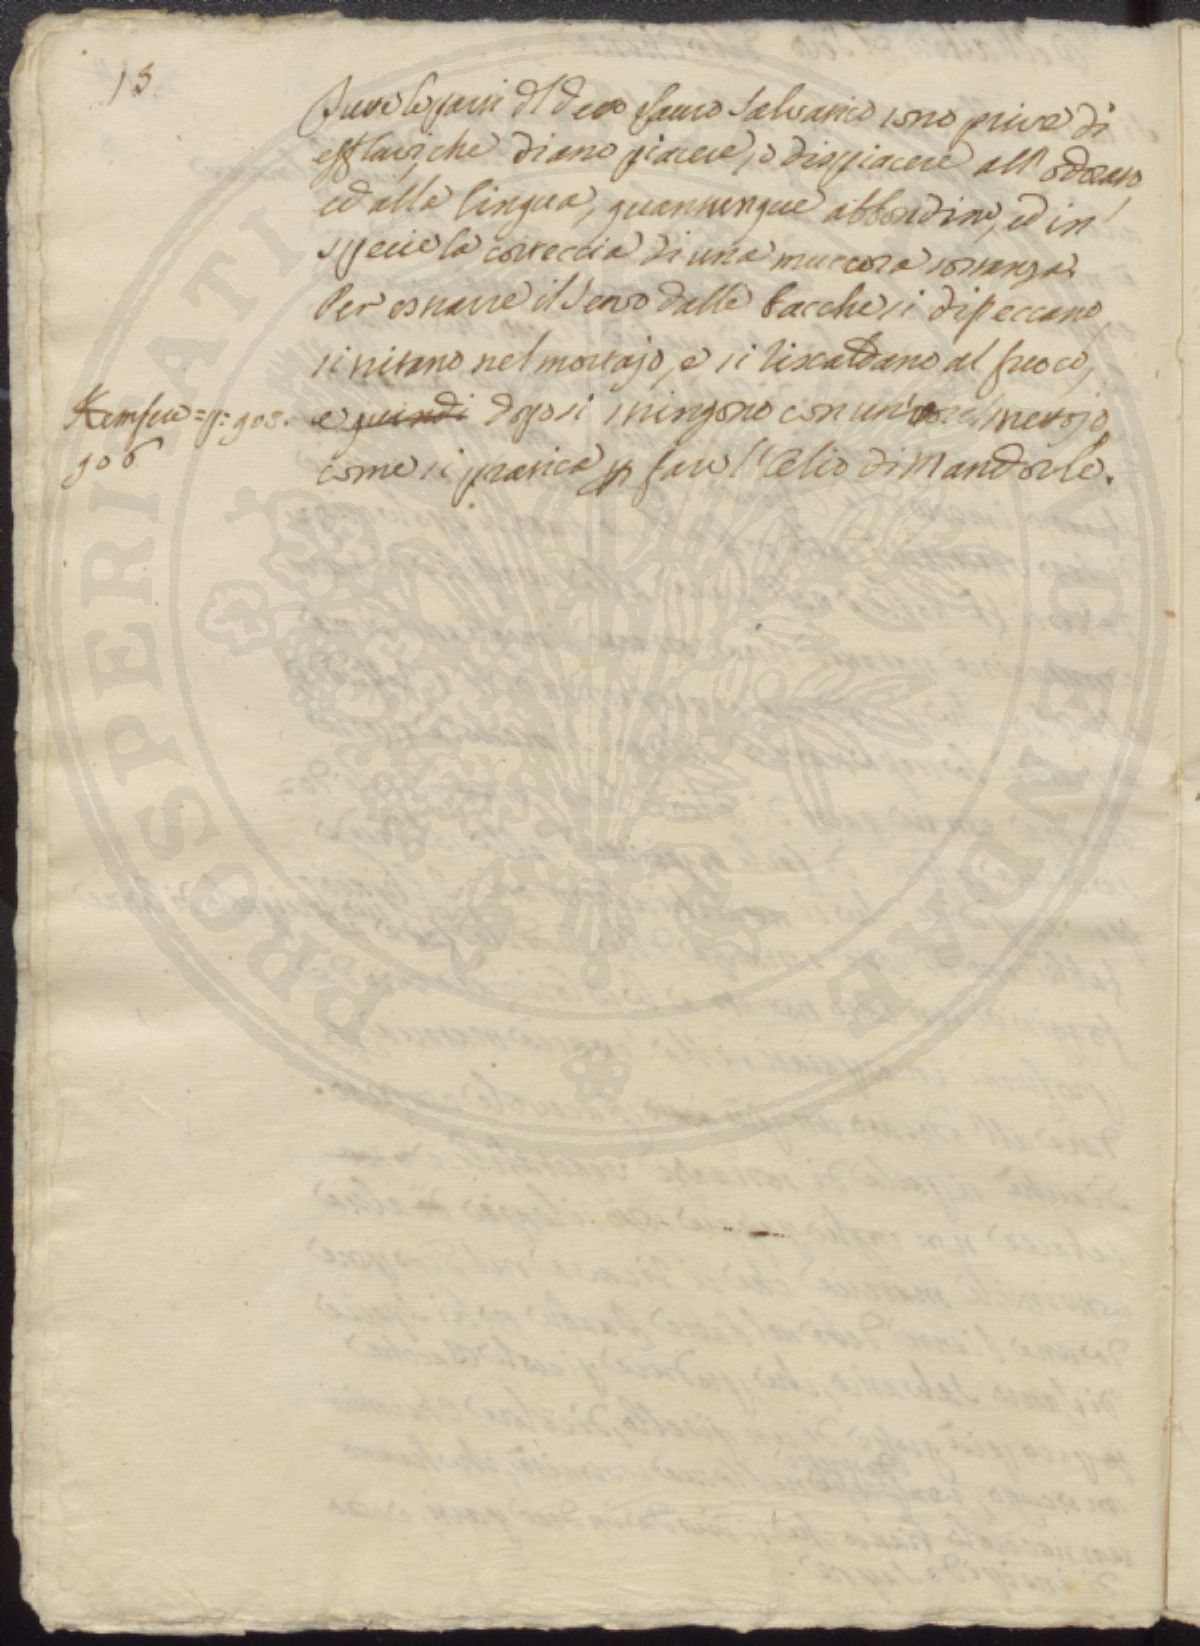 13
Tutte le parti dl deto Lauro Salvatico sono prive di
effluvj, che diano piacere, o dispiacere all' odorato,
ed alla lingua, quantunque abbondino, ed in
specie la corteccia di una muccosa sostanza.
Per estrarre il Sevo dalle bacche si
si pestano nel mortajo, e si riscaldano al fuoco,
e quindi dopo si stringono con un
come si pratica p fare l' Olio di Mandorle.
Kemfero = p: 905.
906
PROSPERITATI EMENDAE